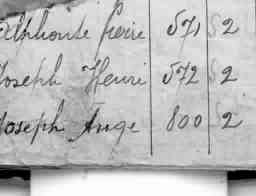 Alphonse Pierre 571 S2
Joseph Henri 572 S2
Joseph Ange 800 S2